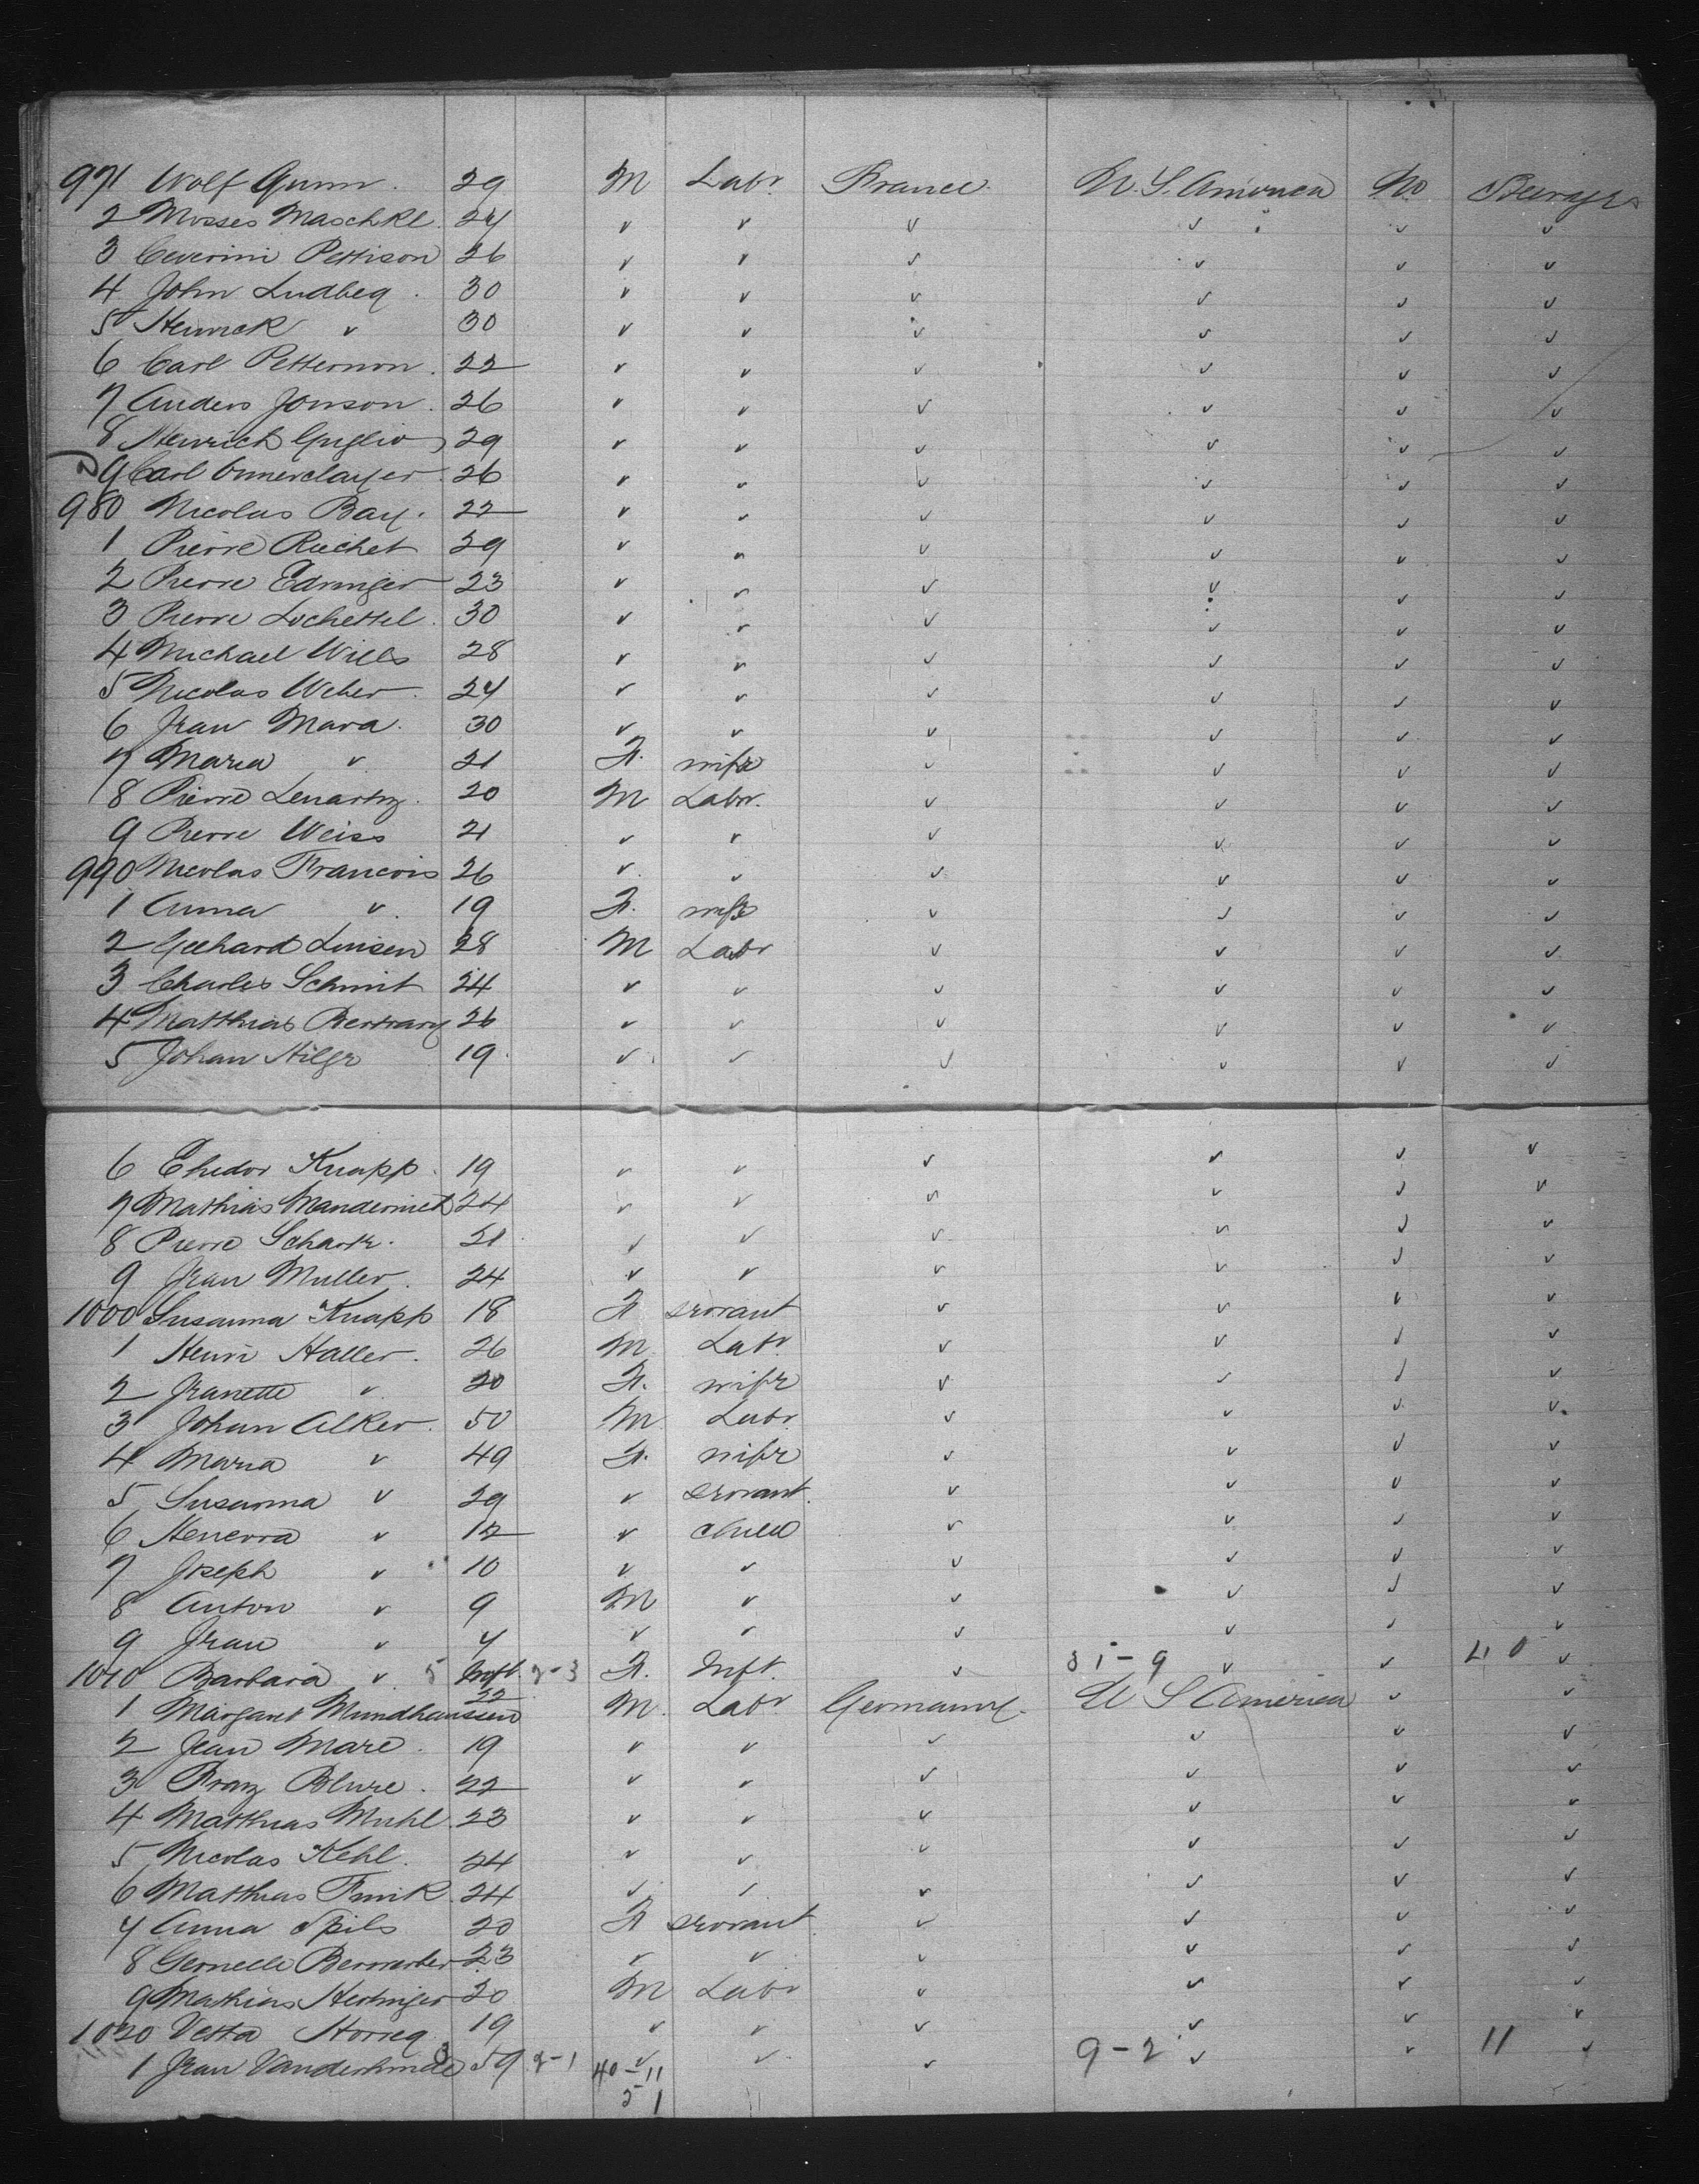 971 Wolf Gunn. 29 M Labr. France. U.S. America No Steerage
2 Mosses Maschke. 24 v v v v v v
3 Ceverini Pettison 26 v v v v v v
4 John Ludbeg. 30 v v v v v v
5 Henrick v 30 v v v v v v
6 Carl Petternon. 22 v v v v v v
7 Anders Jonson. 26 v v v v v v
8 Henrich Guglio 29 v v v v v v
9 Carl 26 v v v v v v
980 Nicolas Bay. 22 v v v v v v
1 Pierre Ruchet 29 v v v v v v
2 Pierre Edringer 23 v v v v v v
3 Pierre Lochettel. 30 v v v v v v
4 Michael Wills 28 v v v v v v
5 Nicolas Weber. 24 v v v v v v
6 Jean Mara. 30 v v v v v v
7 Maria v 21 F. wife v v v v
8 Pierre Lenartz. 20 M Labr. v v v v
9 Pierre Weiss 21 v v v v v v
990 Nicolas Francois 26 v v v v v v
1 Anna v. 19 F. wife v v v v
2 Gerhard Linsen 28 M Labr v v v v
3 Charles Schmit 24 v v v v v v
4 Matthias Bertrang 26 v v v v v v
5 Johan Hilge 19. v v v v v v
6 Knapp. 19 v v v v v v
7 Mathias 24 v v v v v v
8 Pierre Schartz. 21 v v v v v v
9 Jean Muller. 24 v v v v v v
1000 Susanna Knapp 18 F servant v v v v
1 Henri Haller. 26 M. Labr. v v v v
2 Jeanette v. 20 F. wife v v v v
3 Johan Alker. 50 M. Labr. v v v v
4 Maria v 49 F. wife v v v v
5 Susanna v 29 v servant. v v v v
6 v 12 v child v v v v
7 Joseph v 10 v v v v v v
8 Anton v 9 M v v v v v
9 Jean v 4 v v v v v v
1010 Barbara v. 5 Inft. 2-3 F. Inft. v 31-9 v v 40 v
1 Margant Mundhanssen 22 M. Labr Germany. U S America v v
2 Jean Mare. 19 v v v v v v
3 Franz Blure. 22 v v v v v v
4 Matthias Muhl. 23 v v v v v v
5 Nicolas Kehl. 24 v v v v v v
6 Matthias Funk. 24 v v v v v v
7 Anna Spils 20 F servant v v v v
8 23 v v v v v v
9 Mathias Hertinger 20 M Labr v v v v
1020 Vetta Horreg 19 v v v v v v
1 Jean 3 59 2-1 v v v 9-2 v v 11 v
40-11
51